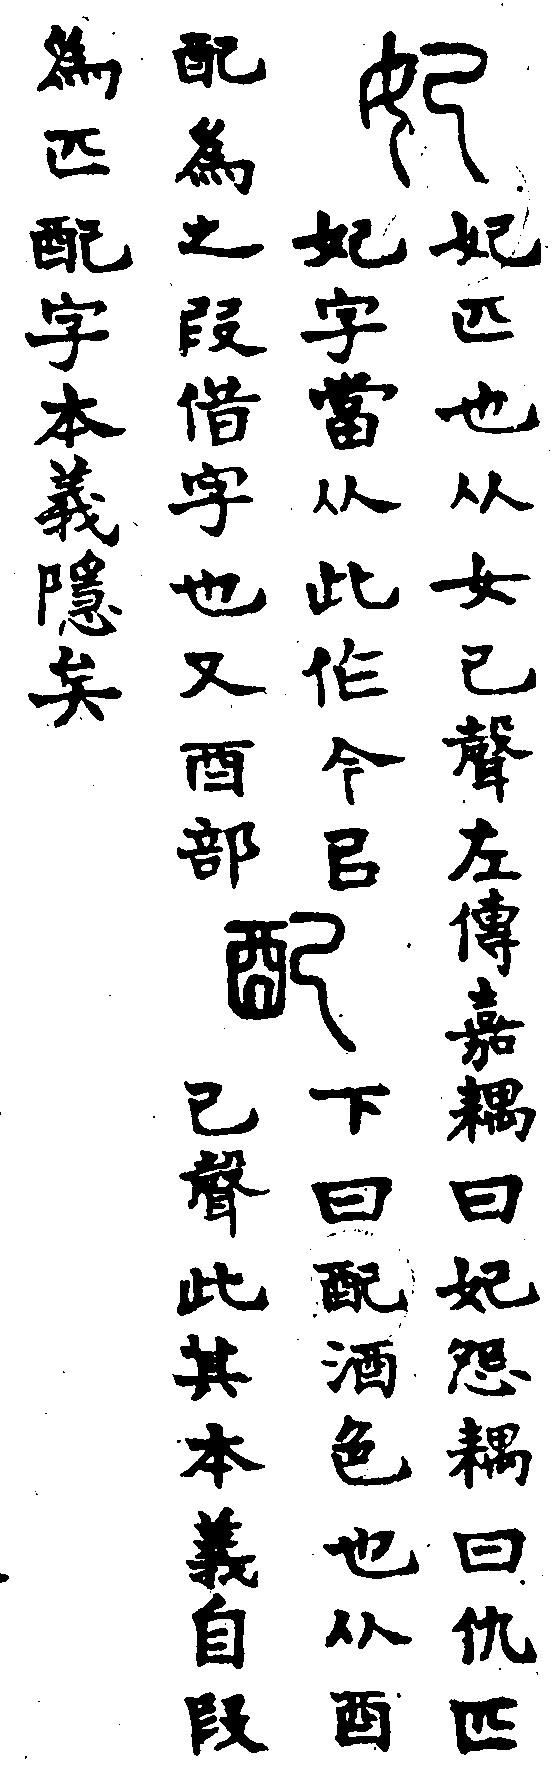 妃
妃匹也从女己聲左傳嘉耦曰妃怨耦曰仇匹
妃字當从此作今㠯
配為之叚借字也又酉部
配
下曰配酒色也从酉
己聲此其本義自叚
為匹配字本義隱矣